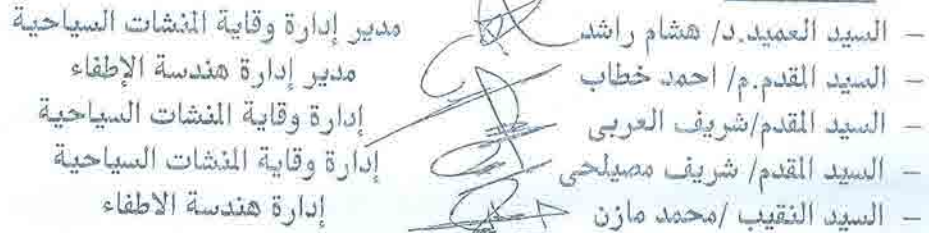 – السيد العميد.د/ هشام راشد مدير إدارة وقاية المنشات السياحية
– السيد المقدم.م/ احمد خطاب مدير إدارة هندسة الإطفاء
– السيد المقدم/شريف العربى إدارة وقاية المنشات السياحية
– السيد المقدم/ شريف مصيلحى إدارة وقاية المنشات السياحية
– السيد النقيب /محمد مازن إدارة هندسة الاطفاء